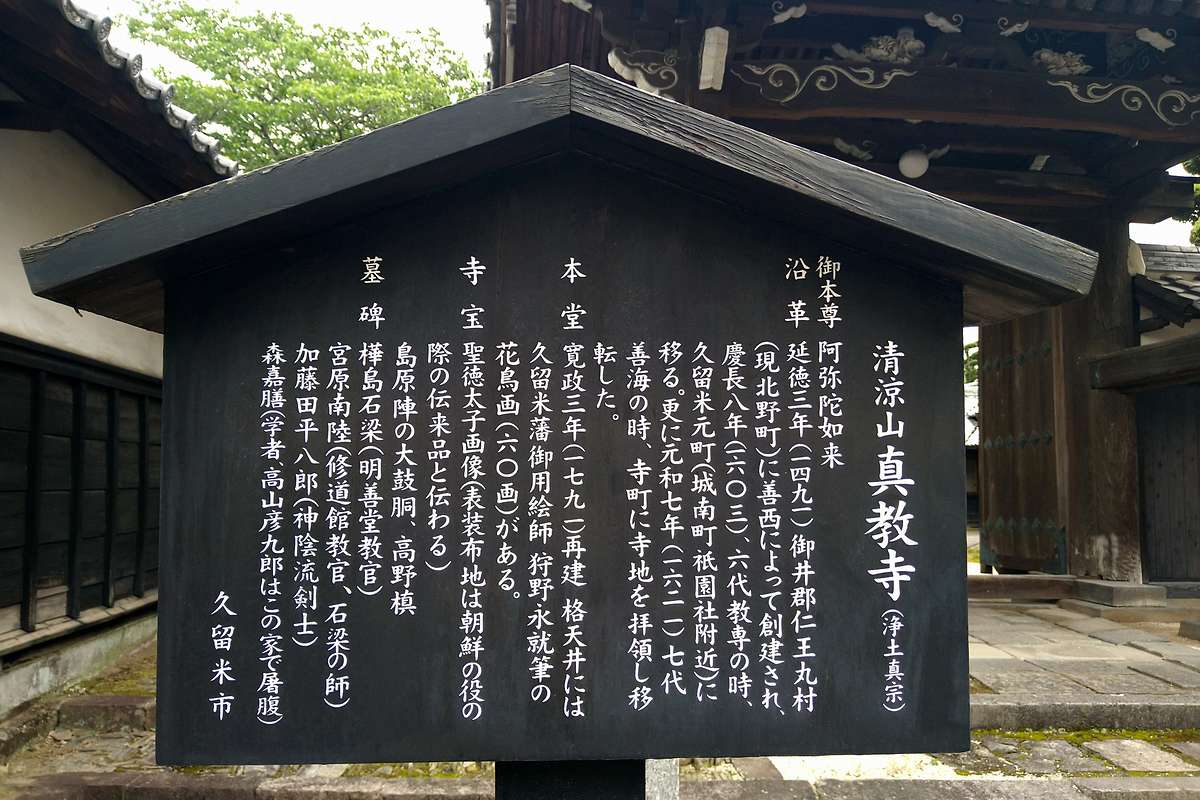 清涼山真教寺(浄土真宗)
御本尊 阿弥陀如来
沿革 延徳三年(一四九一)御井郡仁王丸村
(現北野町)に善西によって創建され、
慶長八年(一六〇三)、六代教専の時、
久留米元町(城南町祇園社附近)に
移る。更に元和七年(一六二一)七代
善海の時、寺町に寺地を拝領し移
転した。
本堂 寛政三年(一七九一)再建 格天井には
久留米藩御用絵師 狩野永就筆の
花鳥画(六〇画)がある。
寺宝 聖徳太子画像(表装布地は朝鮮の役の
際の伝来品と伝わる)
島原陣の大鼓胴、高野槙
墓碑 樺島石梁(明善堂教官)
宮原南陸(修道館教官、石梁の師)
加藤田平八郎(神陰流剣士)
森嘉膳(学者、高山彦九郎はこの家で屠腹)
久留米市